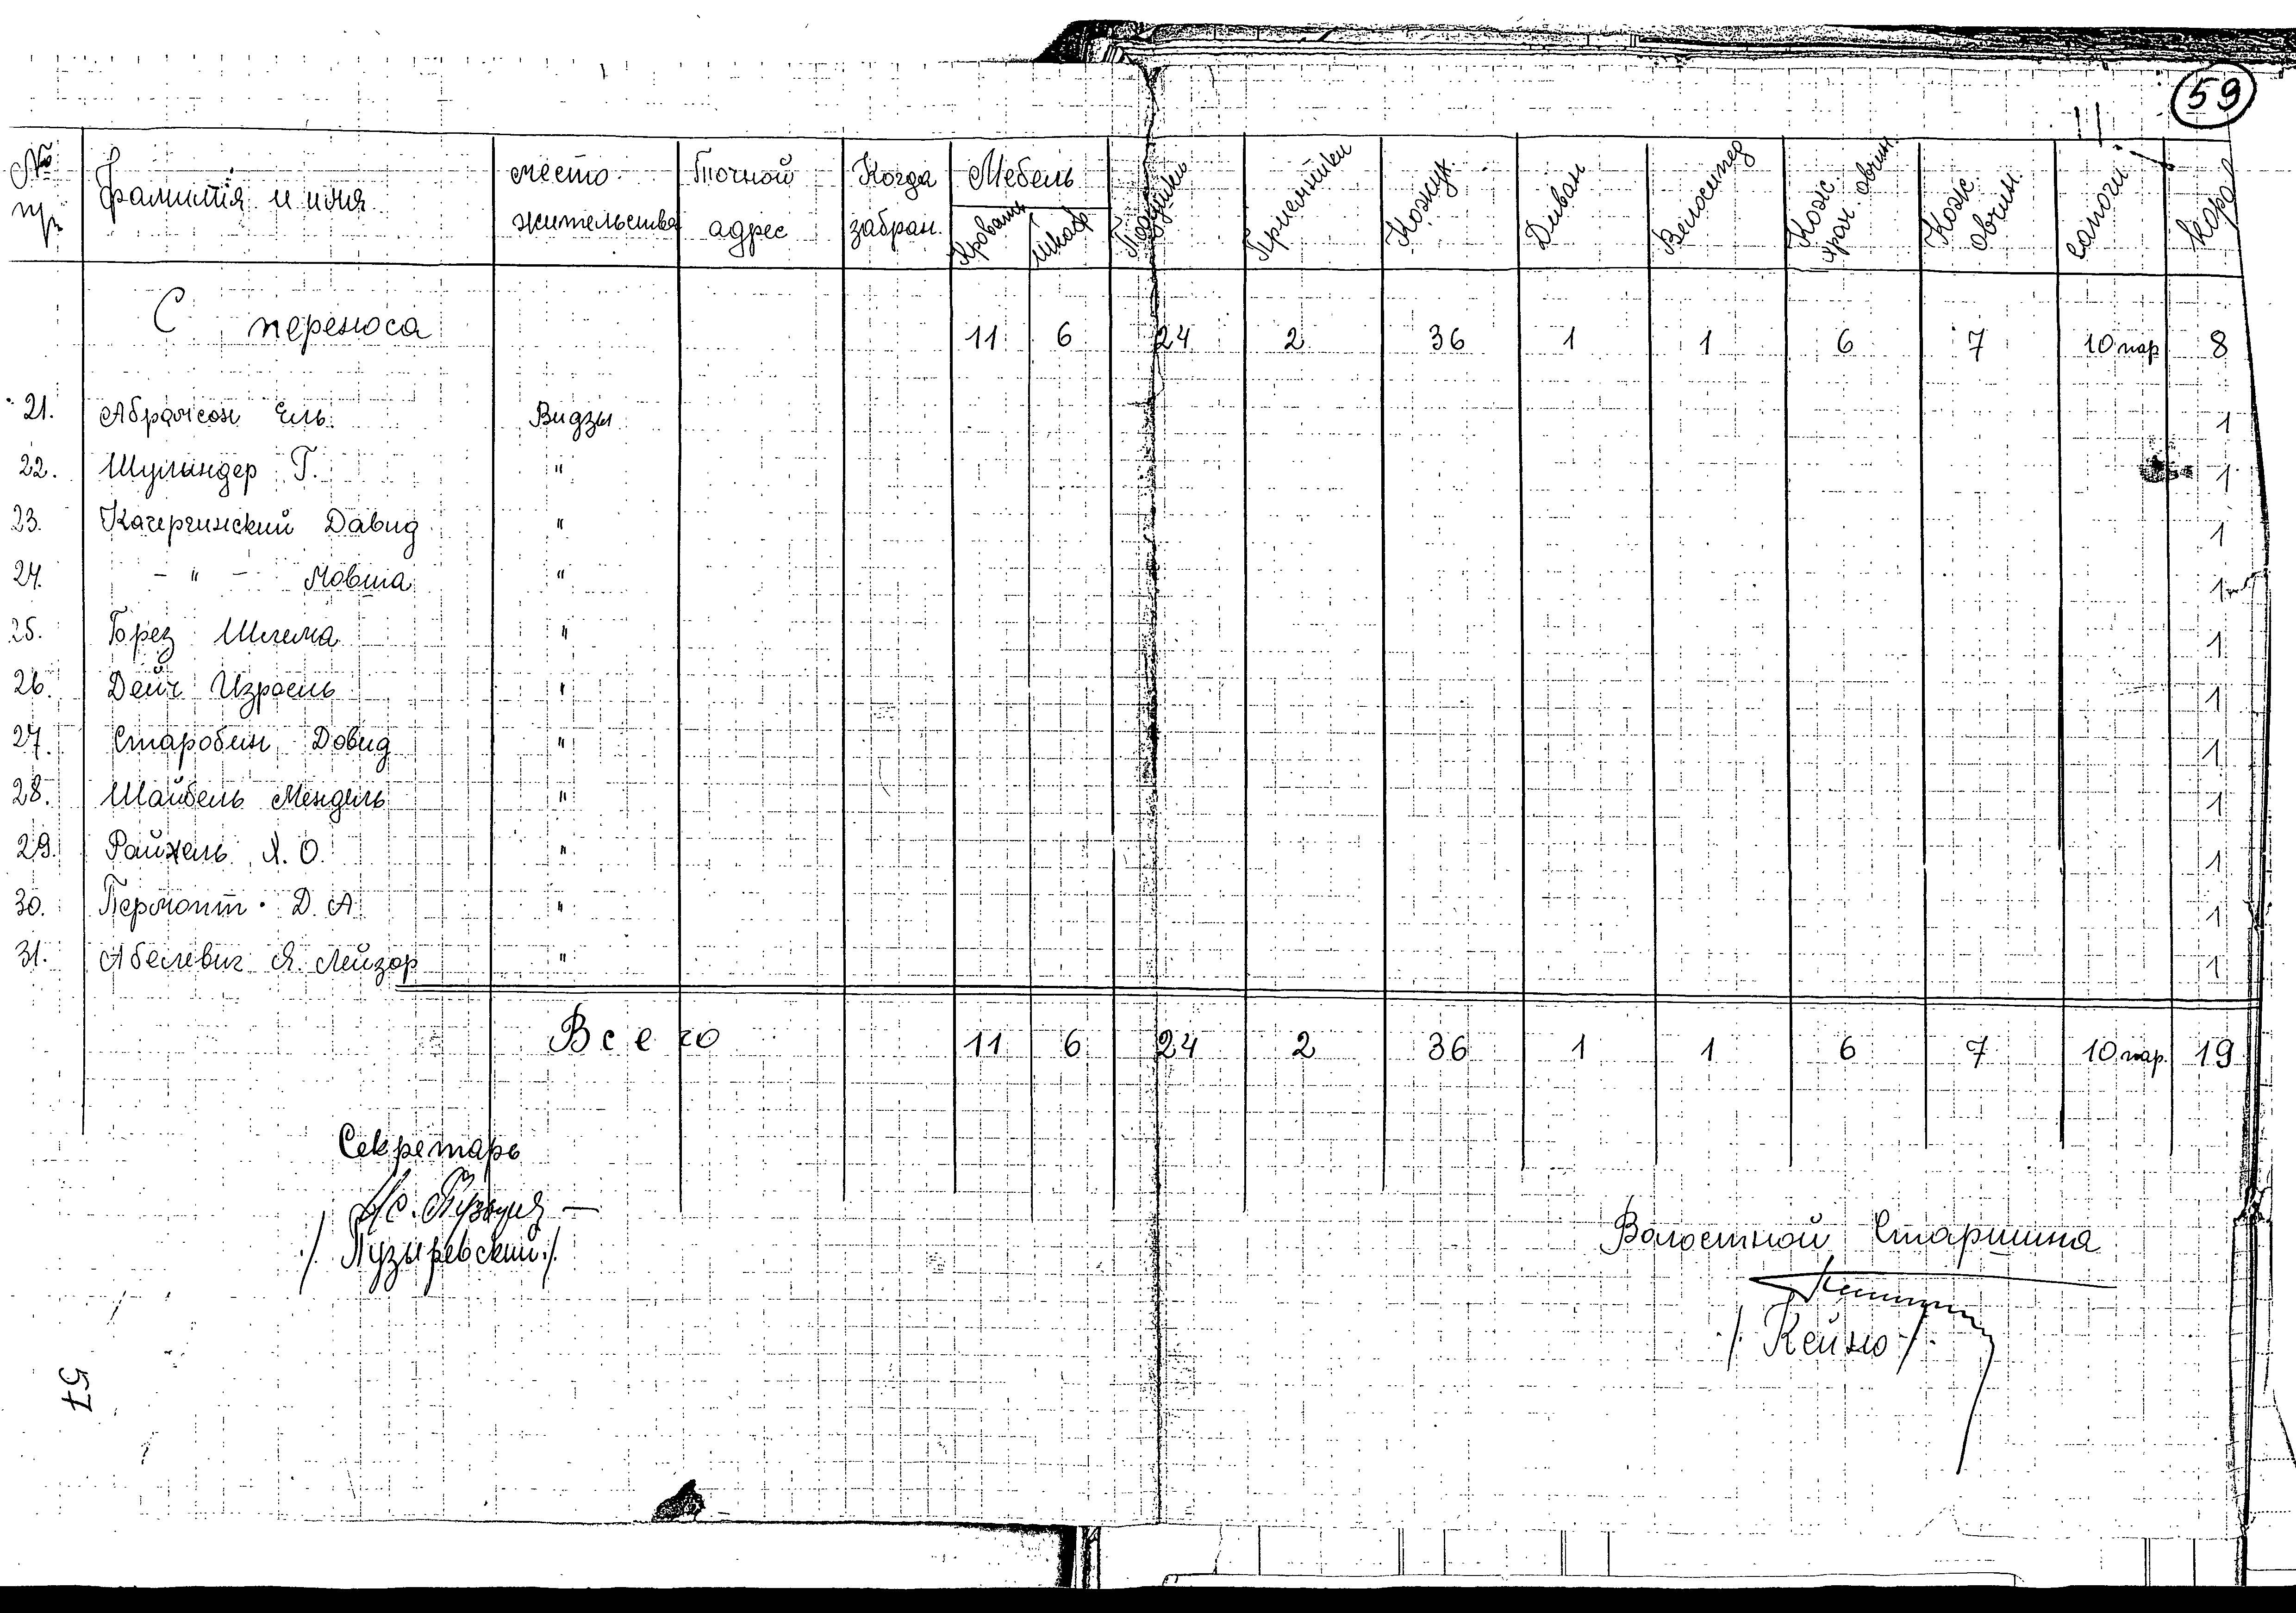 59
№ п/п Фамилія и имя место жительства Точной адрес Когда забран. Мебель Кровать Шкаф Подушки Приемники Кожух Диван Велосипед Кож. хран. овчин. Кож. овчин. сапоги
С переноса 11 6 24 2 36 1 1 6 7 10 пар 8
21. Абрамсон Ель Видзы 1
22. Шулындер Г. " 1
23. Качергинский Давид " 1
24. – " – Мовша " 1
25. Борез Шлема " 1
26. Дейч Израель " 1
27. Старобин Довид " 1
28. Шайбель Мендель " 1
29. Райхель Х. О. " 1
30. Пермонт Д. А. " 1
31. Абелевич Я. Лейзор " 1
Всего 11 6 24 2 36 1 1 6 7 10 пар. 19
Секретарь
/Пузыревский/
Волостной Старшина
/Кейно/
57